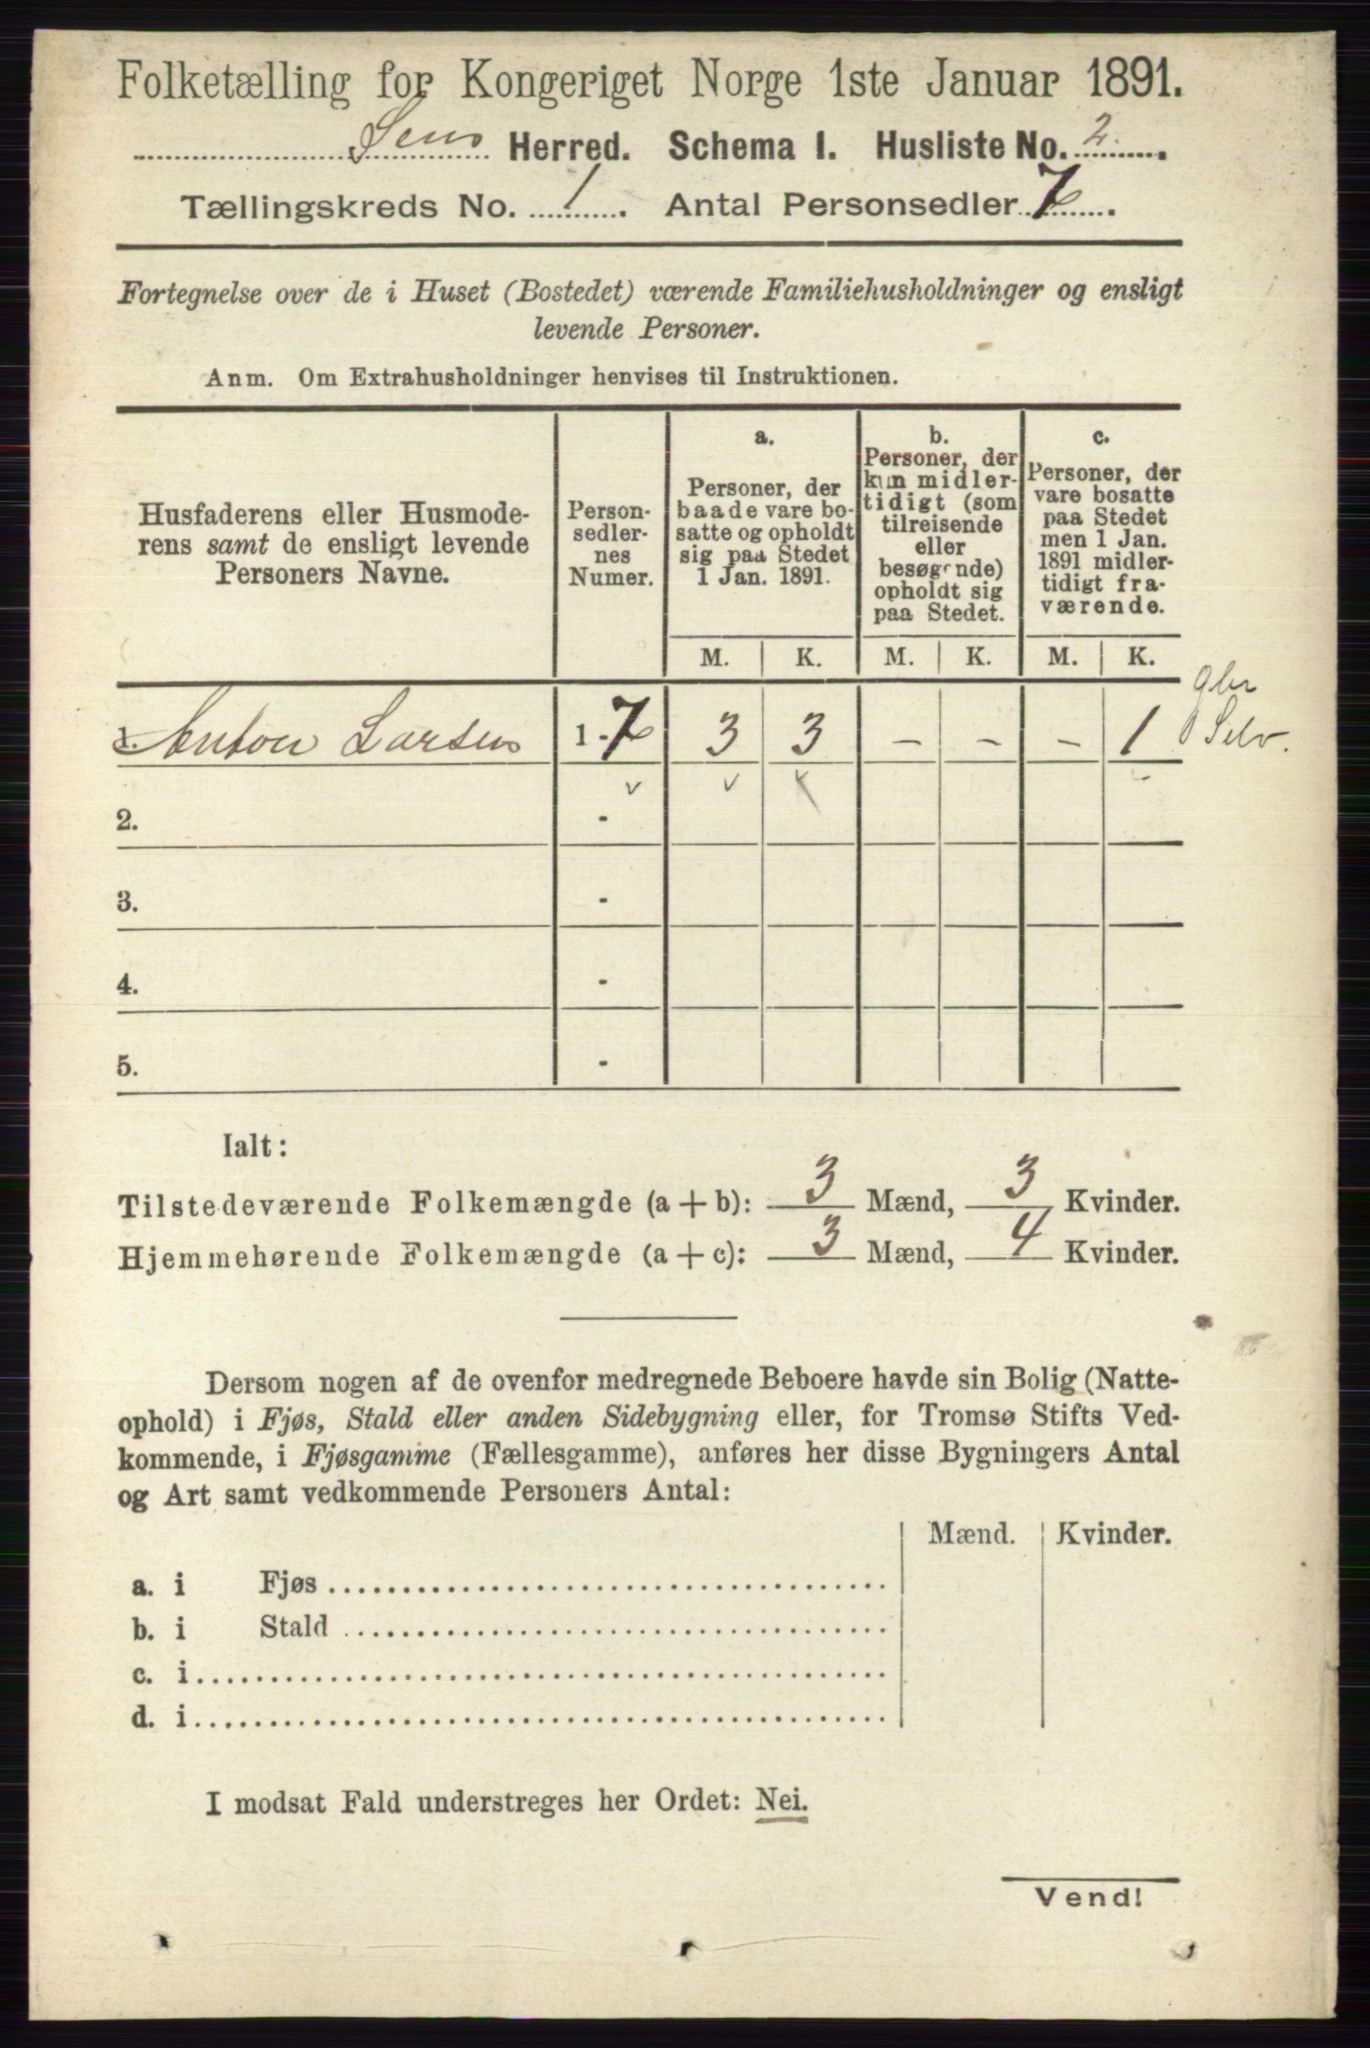 Folketælling for Kongeriget Norge 1ste Januar 1891.
Sem Herred. Schema I. Husliste No. 2.
Tællingskreds No. 1. Antal Personsedler 7.
Fortegnelse over de i Huset (Bostedet) værende Familiehusholdninger og ensligt
levende Personer.
Anm. Om Extrahusholdninger henvises til Instruktionen.
Husfaderens eller Husmode-
rens samt de ensligt levende
Personers Navne.
Person-
sedler-
nes
Numer.
a.
Personer, der
baade vare bo-
satte og opholdt
sig paa Stedet
1 Jan. 1891.
b.
Personer, der
kun midler-
tidigt (som
tilreisende
eller
besøgende)
opholdt sig
paa Stedet.
c.
Personer, der
vare bosatte
paa Stedet
men 1 Jan.
1891 midler-
tidigt fra-
værende.
M. K. M. K. M. K.
1. Anton Larsen 1 - 7 3 3 - - - 1 Selv.
2. -
3. -
4. -
5. -
Ialt:
Tilstedeværende Folkemængde (a + b): 3 Mænd, 3 Kvinder.
Hjemmehørende Folkemængde (a + c): 3 Mænd, 4 Kvinder.
Dersom nogen af de ovenfor medregnede Beboere havde sin Bolig (Natte-
ophold) i Fjøs, Stald eller anden Sidebygning eller, for Tromsø Stifts Ved-
kommende, i Fjøsgamme (Fællesgamme), anføres her disse Bygningers Antal
og Art samt vedkommende Personers Antal:
Mænd. Kvinder.
a. i Fjøs
b. i Stald
c. i
d. i
I modsat Fald understreges her Ordet: Nei.
Vend!